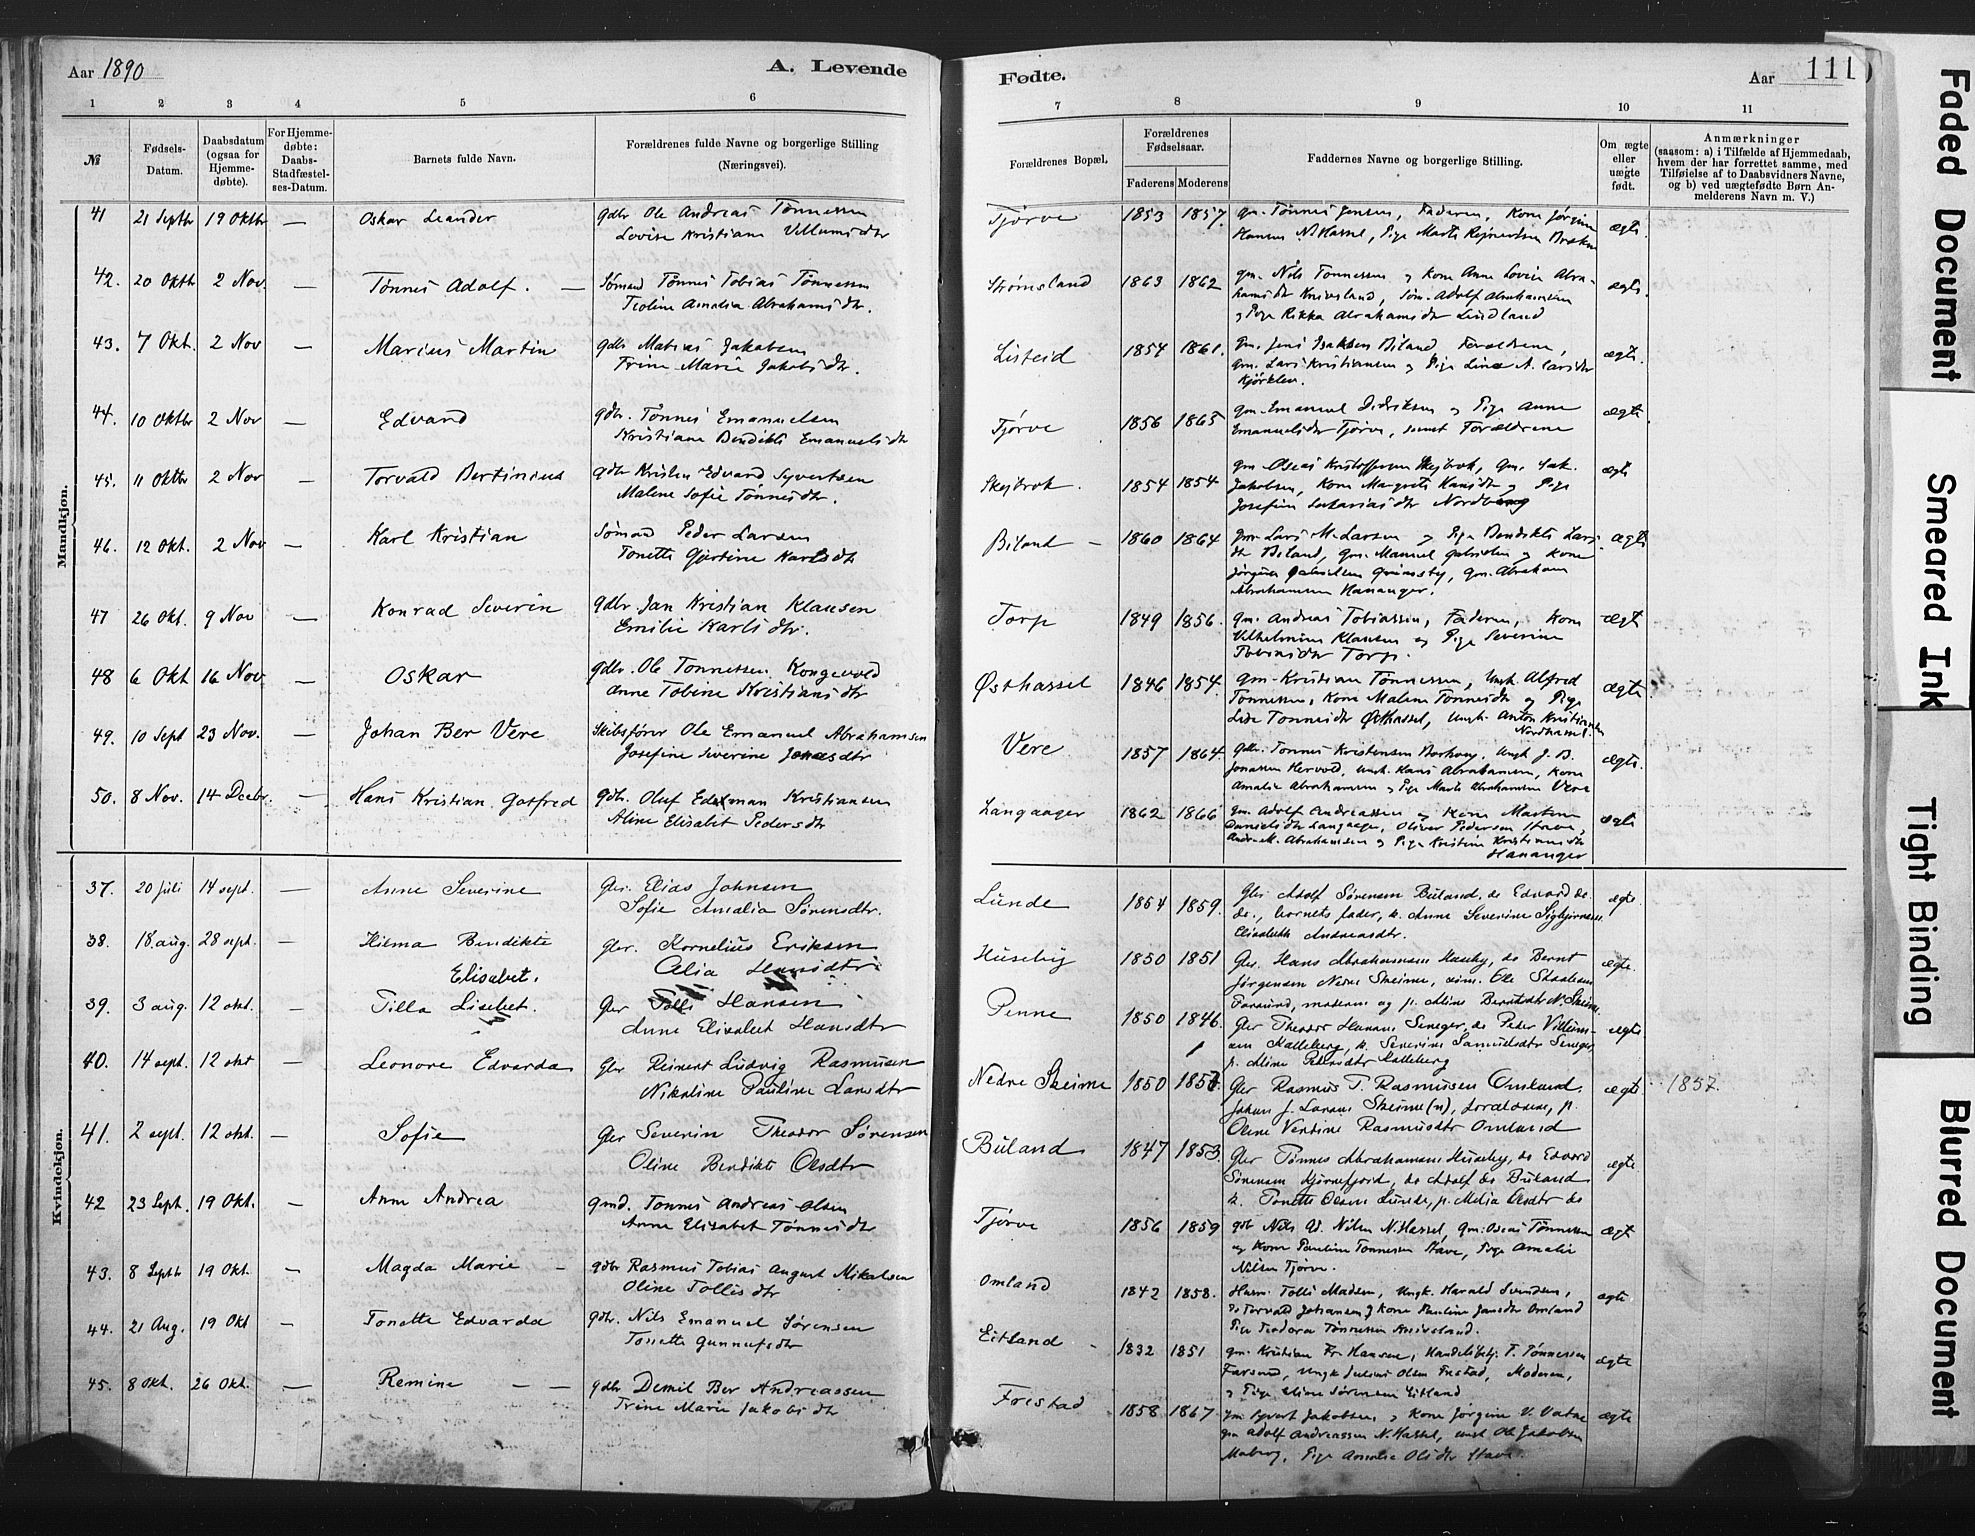 Aar 1890
A. Levende
Fødte.
Aar
111
1 2 3 4 5 6 7 8 9 10 11
№
Fødsels-
Datum.
Daabsdatum
(ogsaa for
Hjemme-
døbte).
For Hjemme-
døbte:
Daabs-
Stadfæstel-
ses-Datum.
Barnets fulde Navn.
Forældrenes fulde Navne og borgerlige Stilling
(Næringsvei).
Forældrenes Bopæl.
Forældrenes
Fødselsaar.
Faderens Moderens
Faddernes Navne og borgerlige Stilling.
Om ægte
eller
uægte
født.
Anmærkninger
(saasom: a) i Tilfælde af Hjemmedaab,
hvem der har forrettet samme, med
Tilføielse af to Daabsvidners Navne,
og b) ved uægtefødte Børn An-
melderens Navn m. V.)
Mandkjøn.
41 21 Septbr 19 Oktbr — Oskar Leander gdbr Ole Andreas Tønnessen Tjørve 1853 1857. gm. Tønnes Jensen, Faderen, Kone Jørgine ægte.
Lovise Kristiane Villumsdtr Hansen N. Hassel, Pige Marte
42. 20 Oktb 2 Nov. — Tønnes Adolf. — Sømand Tønnes Tobias Tønnessen Strømsland 1863 1862 gm. Nils Tønnessen og Kone Anne Lovise Abra- ægte.
Teoline Amalia Abrahamsdtr. hamsdtr Knivsland, Søm. Adolf Abrahamsen
og Pige Rikka Abrahamsdtr Lindland
43. 7 Okt. 2 Nov — Marius Martin gdbr Matias Jakobsen Listeid 1854 1861. gm. Jens Isaksen Biland Forældrene, ægte.
Trine Marie Jakobsdtr. gm. Lars Kristiansen og Pige Line A. Larsdtr
Kjørklev.
44. 10 Oktbr 2 Nov — Edvard gdbr. Tønnes Emanuelsen Tjørve 1856 1865 gm. Emanuel Didriksen og Pige Anne ægte
Kristiane Bendikte Emanuelsdtr Emanuelsdtr Tjørve, samt Forældrene
45. 11 Oktbr 2 Nov — Torvald Bertinius gdbr Kristen Edvard Syvertsen Skejbrok. 1854 1854 gm Oseas Kristoffersen Skejbrok, gm. Sak. ægte
Malene Sofie Tønnesdtr. Jakobsen, Kone Margrete Hansdtr og Pige
Josefine Sakariasdtr Nordberg
46. 12 Okt. 2 Nov — Karl Kristian Sømand Peder Larsen Biland — 1860 1864 gm. Lars M. Larsen og Pige Bendikte Lars- ægte
Tonette Gjertine Karlsdtr dtr Biland, gm. Manuel Gabrielsen og Kone
Jørgine Gabrielsen Grimsby, gm. Abraham
Abrahamsen Hananger.
47 26 Okt. 9 Nov — Konrad Severin gdbr Jan Kristian Klausen Torp 1849 1856. gm. Andreas Tobiassen, Faderen, Kone ægte
Emilie Karlsdtr. Vilhelmine Klausen og Pige Severine
Tobiasdtr Torp.
48 6 Okt 16 Nov — Oskar gdbr. Ole Tønnessen Kongevold Østhassel 1846 1854. gm. Kristian Tønnessen, Ungk. Alfred ægte
Anne Tobine Kristiansdtr Tønnessen, Kone Malene Tønnesdtr og Pige
Lise Tønnesdtr Østhassel, Ungk. Anton Kristiansen
Nordhassel
49. 10 Sept 23 Nov. — Johan Ber Vere Skibsfører Ole Emanuel Abrahamsen Vere 1857 1864. Gdbr. Tønnes Kristensen Borhaug, Ungk J. B. ægte.
Josefine Severine Jonasdtr Jonassen Hervold, Ungk. Hans Abrahamsen, Kone
Amalie Abrahamsen og Pige Marte Abrahamsen Vere
50. 8 Nov. 14 Decbr. — Hans Kristian Gotfred gdbr. Oluf Edelman Kristiansen Langaager 1862 1866 gm. Adolf Andreassen og Kone Martine ægte
Aline Elisabet Pedersdtr Danielsdtr Langaager, Oliver Pedersen Stave,
Abrahamsen og Pige Kristine Kristiansdtr
Hananger
Kvindekjøn.
37. 20 juli 14 sept. — Anne Severine Gbr. Elias Johnsen Lunde 1854 1859. Gbr Adolf Sørensen Büland, do Edvard do ægte.
Sofie Amalia Sørensdtr. do., barnets fader, k. Anne Severine Sigbjørnsen
Elisabeth Andreasdtr.
38. 18. aug. 28 sept. — Hilma Bendikte Gbr. Kornelius Eriksen Huseby 1850 1851 Gbr. Hans Abrahamsen Huseby, do Bernt ægte.
Elisabet. Olia Hansdtr Jørgensen Nedre Skeime, søm. Ole Skaalesen
Farsund, moderen og p. Aline Berntsdtr N. Skeime
39. 3 aug. 12 okt. — Tilla Lisebet. Gbr Tolli Hansen Penne 1850 1846. Gbr Theodor Hansen Seneger, do Peder Vilhelm- ægte
Anne Elisabet Hansdtr sen Kalleberg, k. Severine Samuelsdtr Seneger
p. Aline Pedersdtr Kalleberg
40. 14 sept. 12 okt — Leonore Edvarda Gbr Reinert Ludvig Rasmusen Nedre Skeime 1850 1857 Gbr Rasmus T. Rasmussen Omland, ægte. 1857.
Nikoline Pauline Larsdtr Johan J. Larsen Skeime (n), forældrene, p.
Oline Ventine Rasmusdtr Omland
41. 2 sept. 12 okt. — Sofie Gbr Severin Theodor Sørensen Büland 1847 1853 Gbr Tønnes Abrahamsen Huseby, do Edvard ægte
Oline Bendikte Olsdtr Sørensen Kjørrefjord, do Adolf do Büland
k. Tonette Olsen Lunde, p. Melia Olsdtr do
42 23 Sept. 19 Okt. — Anne Andrea gmd. Tønnes Andreas Olsen Tjørve 1856 1859 gdbr Nils A. Nilsen N. Hassel, gm. Oseas Tønnessen ægte
Anne Elisabet Tønnesdtr og Kone Pauline Tønnesen Stave, Pige Amalie
Nilsen Tjørve.
43. 8 Septbr 19 Okt. — Magda Marie — gdbr Rasmus Tobias August Mikalsen Omland 1842 1858. Husm. Tolli Madsen, Ungk. Harald Svendsen, ægte.
Oline Tollisdtr do Torvald Johansen og Kone Pauline Jansdtr Omland
Pige Teodora Tønnessen Knivsland.
44. 21 Aug. 19 Okt — Tonette Edvarda gdbr. Nils Emanuel Sørensen Eitland 1832 1851 gm. Kristian Fr. Hansen, Handelsbetj. T. Tønnessen ægte
Tonette Gunnufsdtr Farsund, Ungk Julius Olsen Frestad, Moderen,
og Pige Eline Sørensen Eitland
45. 8 Okt. 26 Okt. — Remine — — gdbr Demil Ber Andreassen Frestad 1858 1867 gm Syvert Jakobsen og Kone Jørgine V. Vatne ægte
Trine Marie Jakobsdtr gm Adolf Andreassen N. Hassel, Ungk Ole Jakobsen
Maberg, Pige Amalie Olsdtr Stave.
Faded Document
Smeared Ink
Tight Binding
Blurred Document